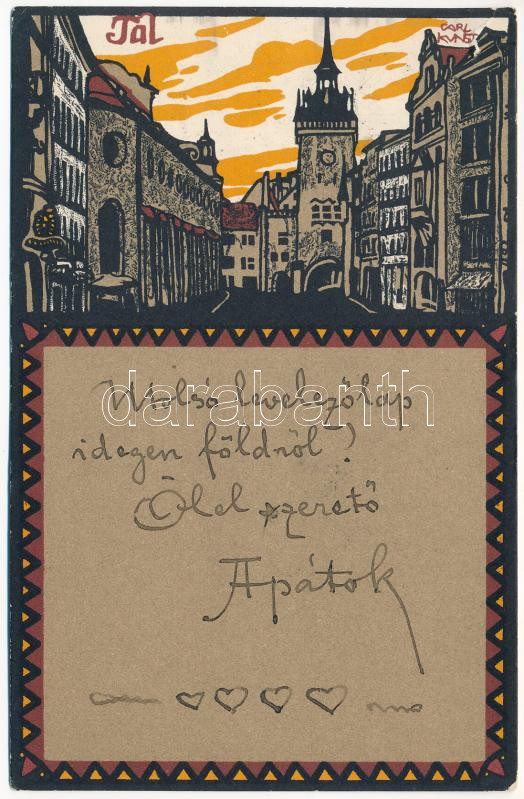 Tal
CARL
KUNST
Utolsó levelezőlap
darabanth
idegen földről!
Ölel szerető
Apátok